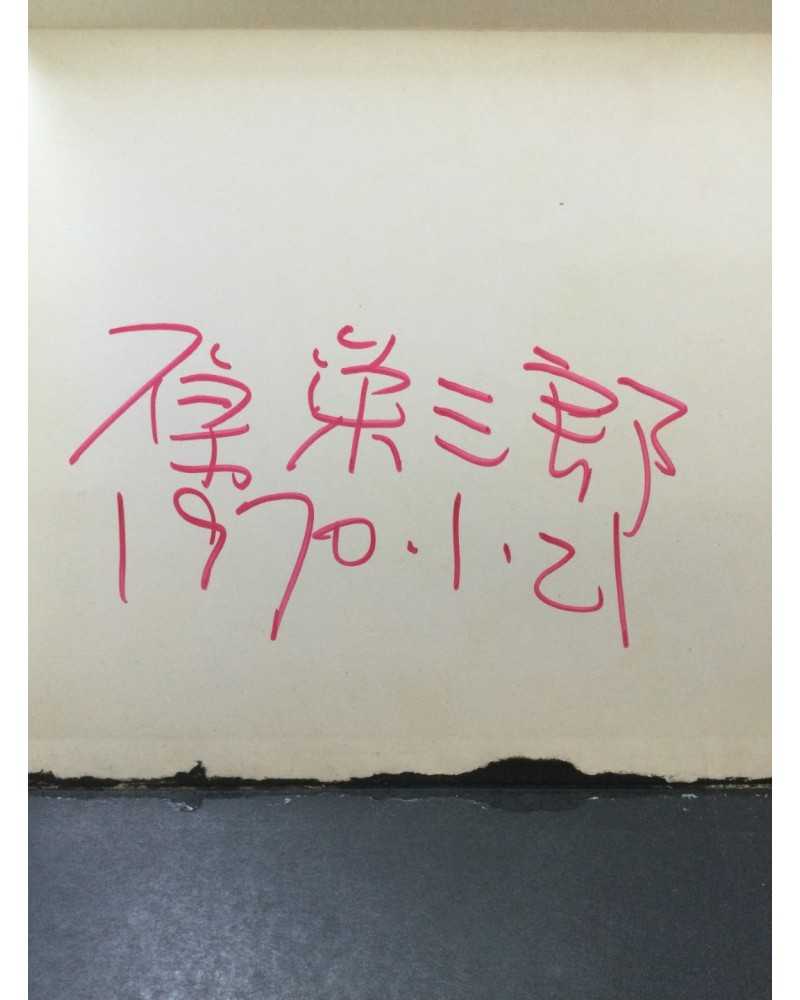 原栄三郎
1970.1.21